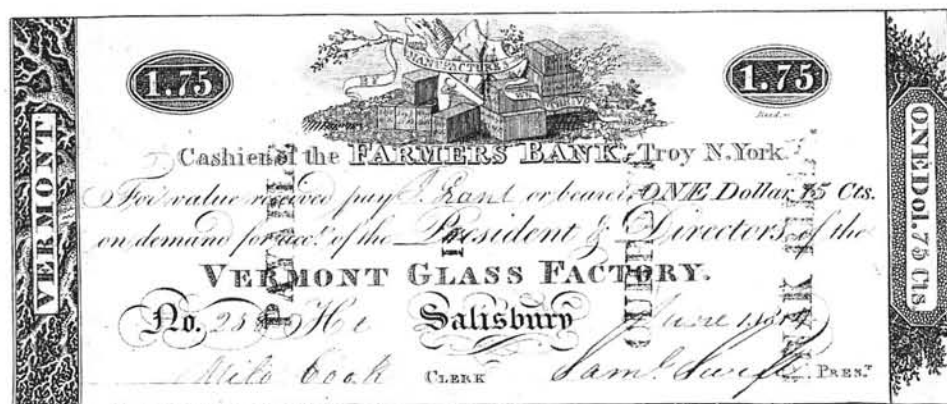 VERMONT.
1.75
MANUFACTURES
1.75
ONE Dol. 75 Cts
Cashier of the FARMERS BANK, Troy N. York.
For value received pay or bearer ONE Dollar 75 Cts.
on demand for acct. of the President & Directors of the
VERMONT GLASS FACTORY.
No. Salisbury June 1
Milo Cook CLERK Saml. Swift PREST.
PAYABLE
IN
CURRENT
BANK BILLS.